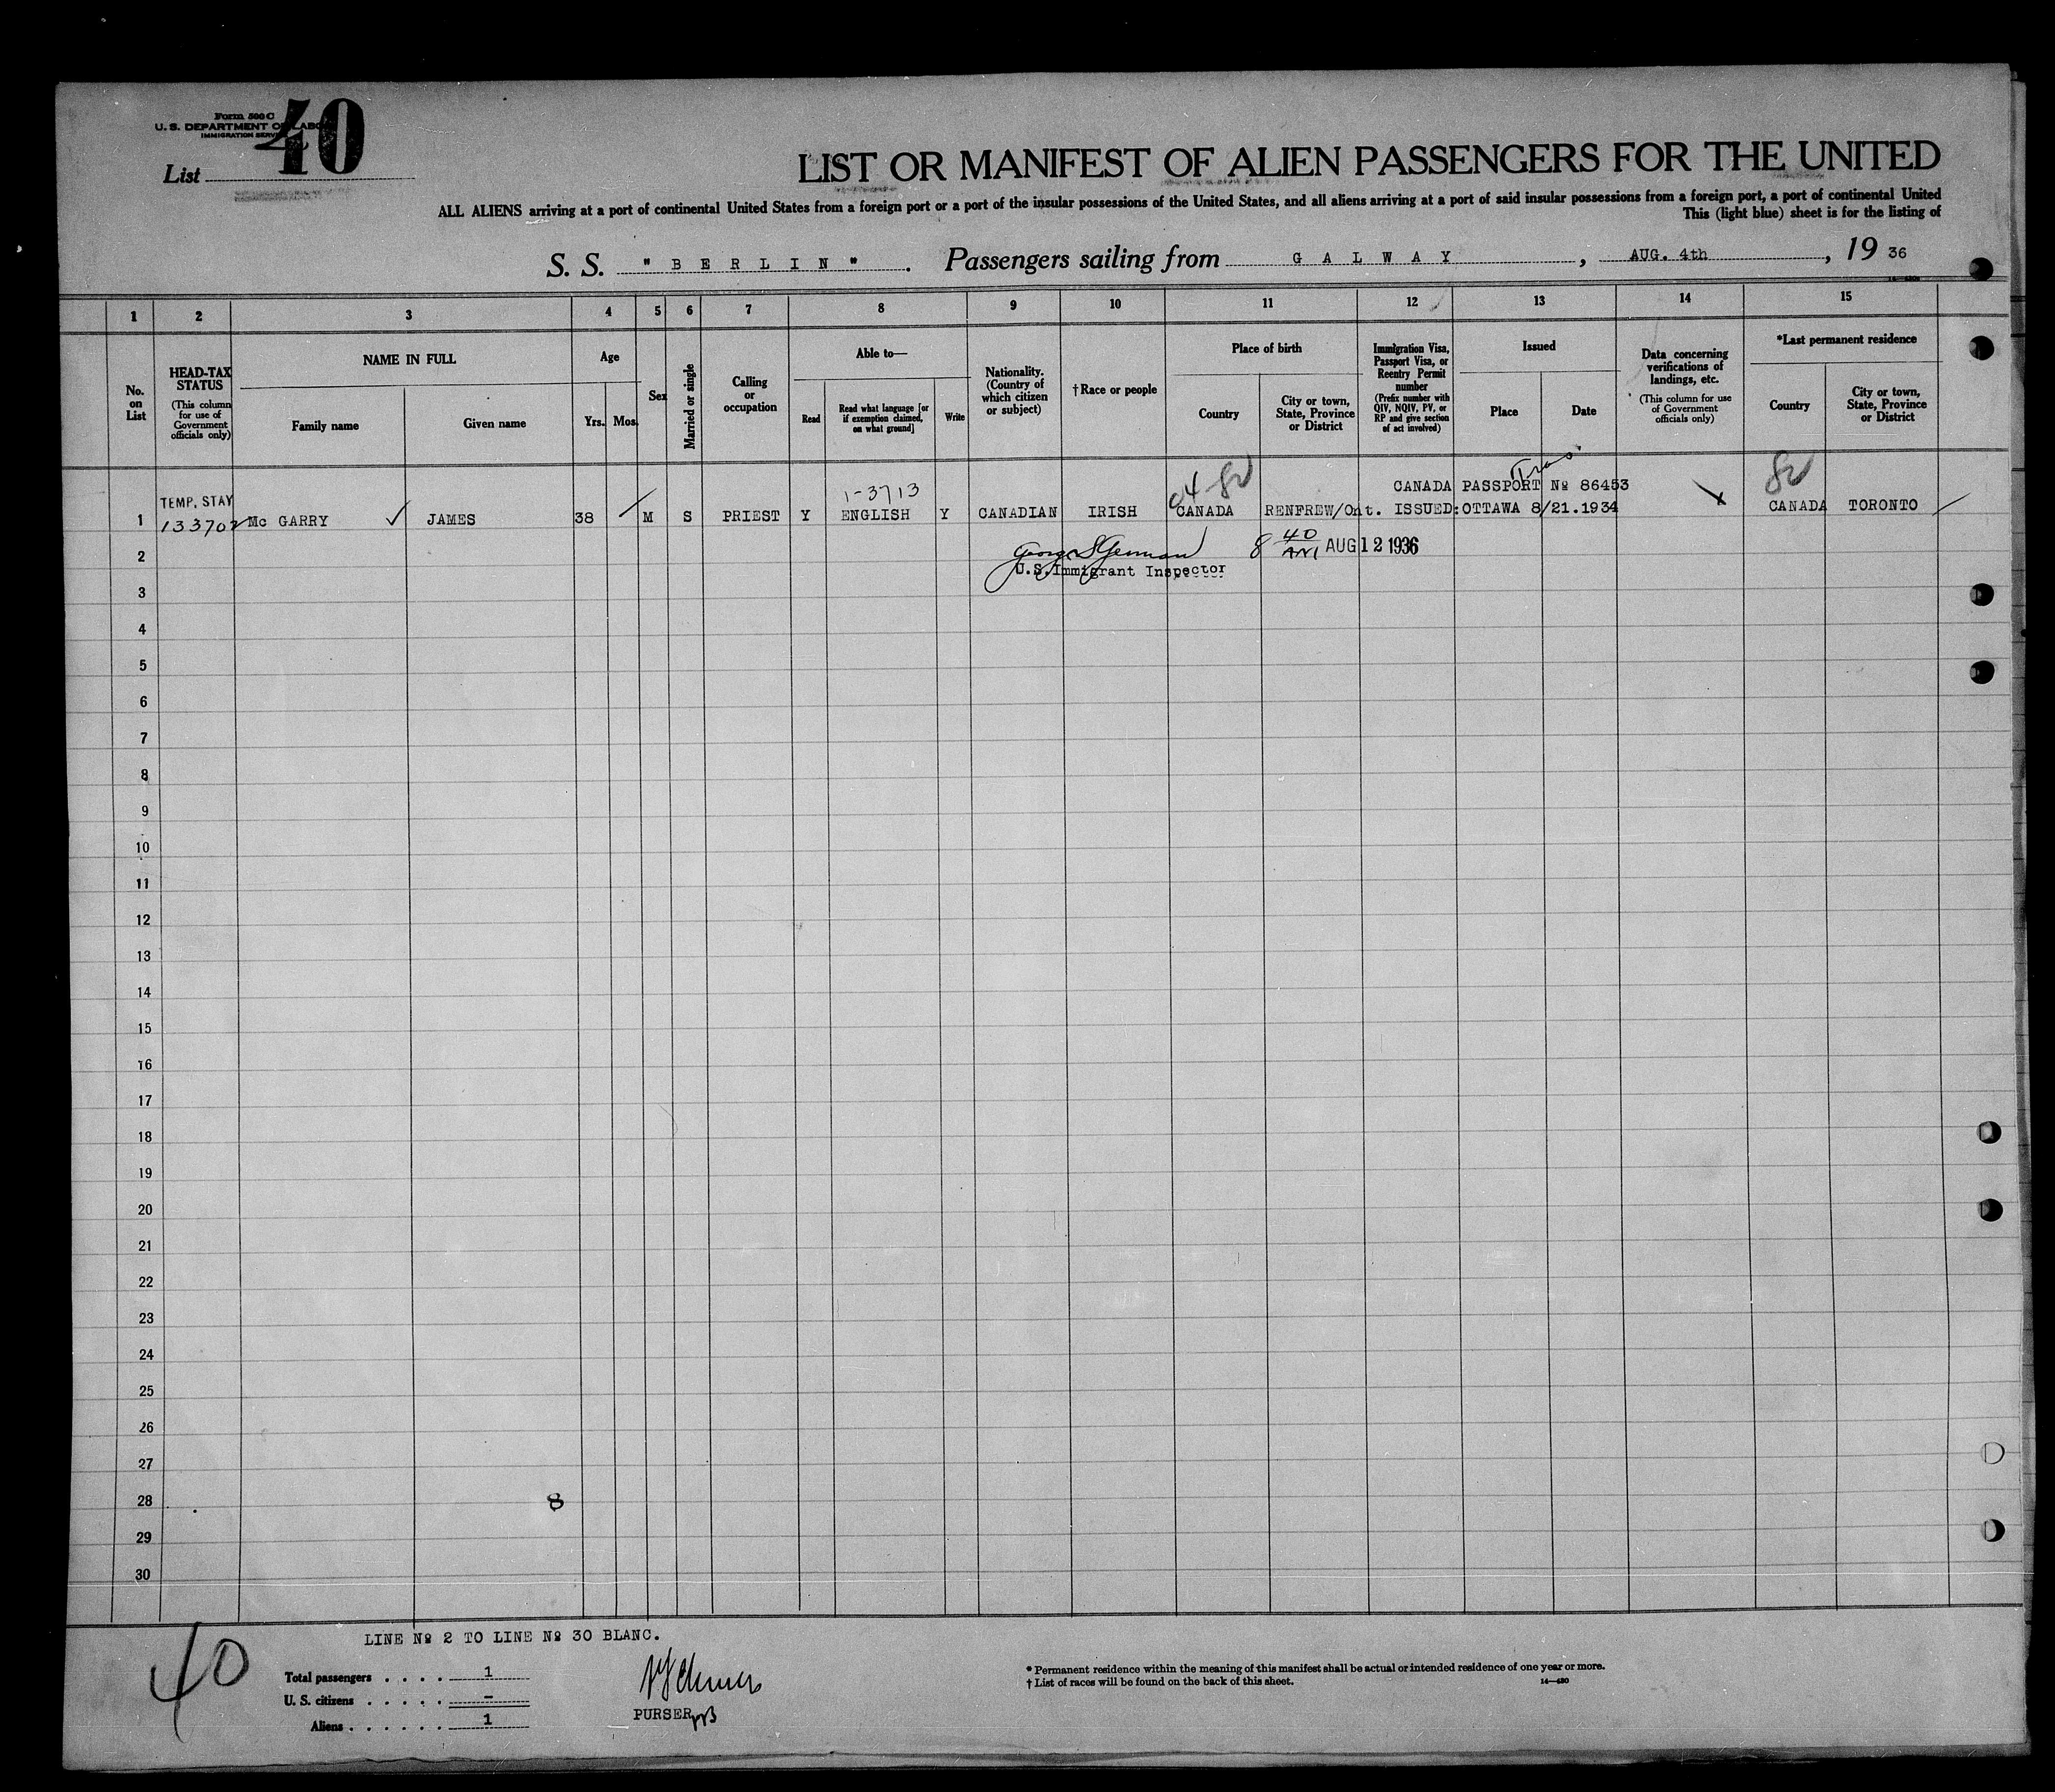 Form 500 C
U. S. DEPARTMENT OF LABOR
IMMIGRATION SERVICE
40
List
LIST OR MANIFEST OF ALIEN PASSENGERS FOR THE UNITED
ALL ALIENS arriving at a port of continental United States from a foreign port or a port of the insular possessions of the United States, and all aliens arriving at a port of said insular possessions from a foreign port, a port of continental United
This (light blue) sheet is for the listing of
S. S. "BERLIN". Passengers sailing from GALWAY, AUG. 4th, 19 36
1 2 3 4 5 6 7 8 9 10 11 12 13 14 15
No. on List
HEAD-TAX STATUS
(This column for use of Government officials only)
NAME IN FULL
Family name
Given name
Age
Yrs.
Mos.
Sex
Married or single
Calling or occupation
Able to—
Read
Read what language [or if exemption claimed, on what ground]
Write
Nationality. (Country of which citizen or subject)
† Race or people
Place of birth
Country
City or town, State, Province or District
Immigration Visa, Passport Visa, or Reentry Permit number
(Prefix number with QIV, NQIV, PV, or RP and give section of act involved)
Issued
Place
Date
Data concerning verifications of landings, etc.
(This column for use of Government officials only)
*Last permanent residence
Country
City or town, State, Province or District
TEMP, STAY 1-3713 CANADA PASSPORT No 86453
1 133702 Mc GARRY JAMES 38 M S PRIEST Y ENGLISH Y CANADIAN IRISH CANADA RENFREW/Ont. ISSUED:OTTAWA 8/21.1934 CANADA TORONTO
2 8 40 AM AUG 12 1936
U.S. Immigrant Inspector
3
4
5
6
7
8
9
10
11
12
13
14
15
16
17
18
19
20
21
22
23
24
25
26
27
28 8
29
30
LINE No 2 TO LINE No 30 BLANC.
40
Total passengers . . . . 1
U. S. citizens . . . . . –
Aliens . . . . . . 1
PURSER
* Permanent residence within the meaning of this manifest shall be actual or intended residence of one year or more.
† List of races will be found on the back of this sheet.
14—430